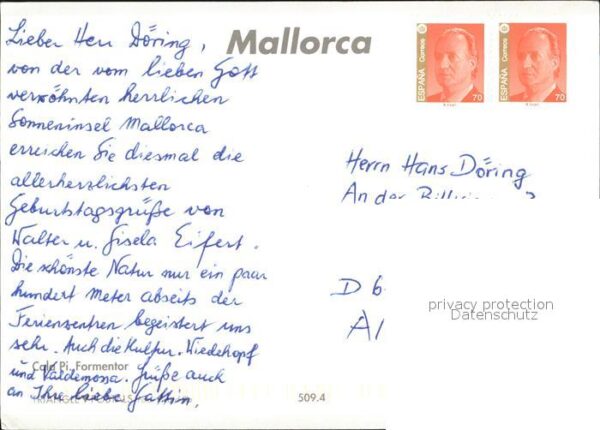 Mallorca
Lieber Herr Döring,
von der vom lieben Gott
verwöhnten herrlichen
Sonneninsel Mallorca
erreichen Sie diesmal die
allerherzlichsten
Geburtstagsgrüße von
Walter u. Gisela Eifert.
Die schönste Natur nur ein paar
hundert Meter abseits der
Ferienzentren begeistert uns
sehr. Auch die Kultur. Wiedehopf
und Valdemosa. Grüße auch
an Ihre liebe Gattin.
Cala Pi. Formentor
TRIANGLE POSTALS
509.4
Correos
ESPAÑA
70
Correos
ESPAÑA
70
Herrn Hans Döring
An der
D 6
Al
privacy protection
Datenschutz